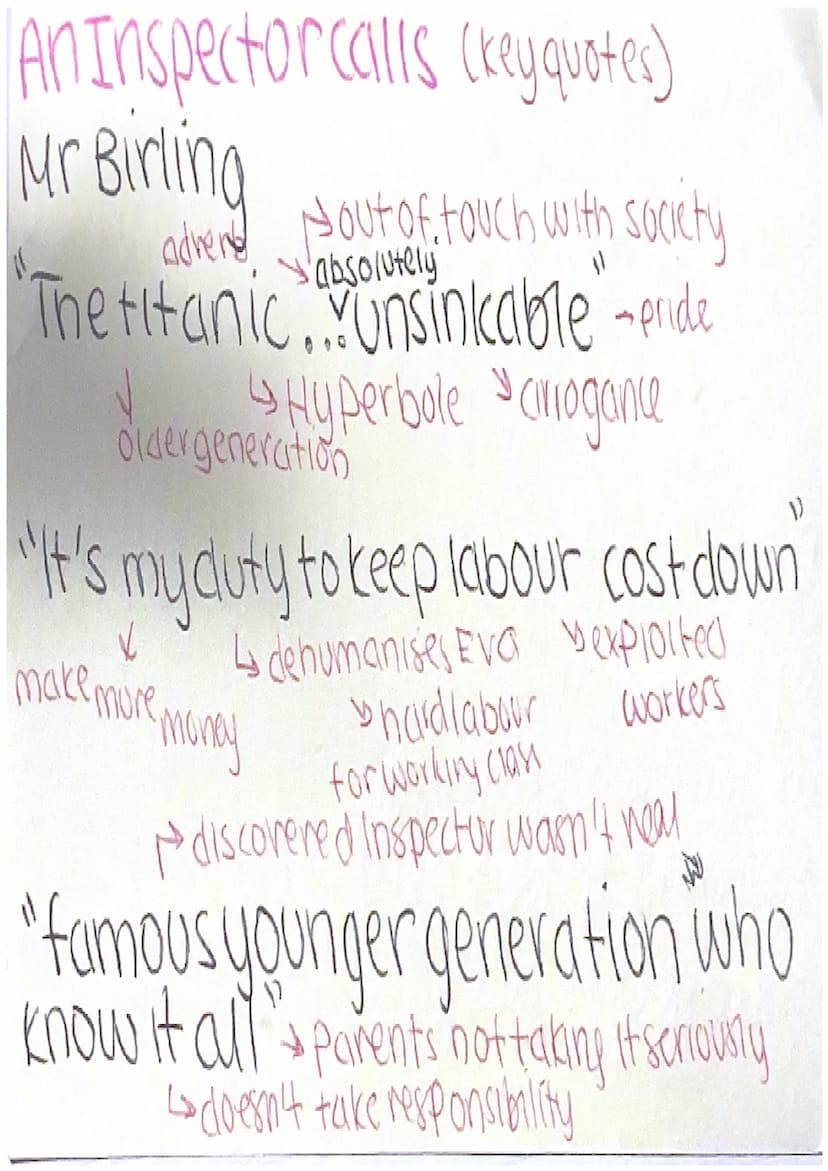 An Inspector calls (key quotes)
Mr Birling
adverb ↱out of touch with society
↘absolutely
"The titanic...unsinkable" →pride
↓ ↳Hyperbole ↘arrogance
older generation
"It's my duty to keep labour cost down"
↙ ↳dehumanises Eva ↘exploited
make more money ↘hard labour workers
for working class
↱discovered Inspector wasn't real
"famous younger generation who
know it all" ↘parents not taking it seriously
↳doesn't take responsibility